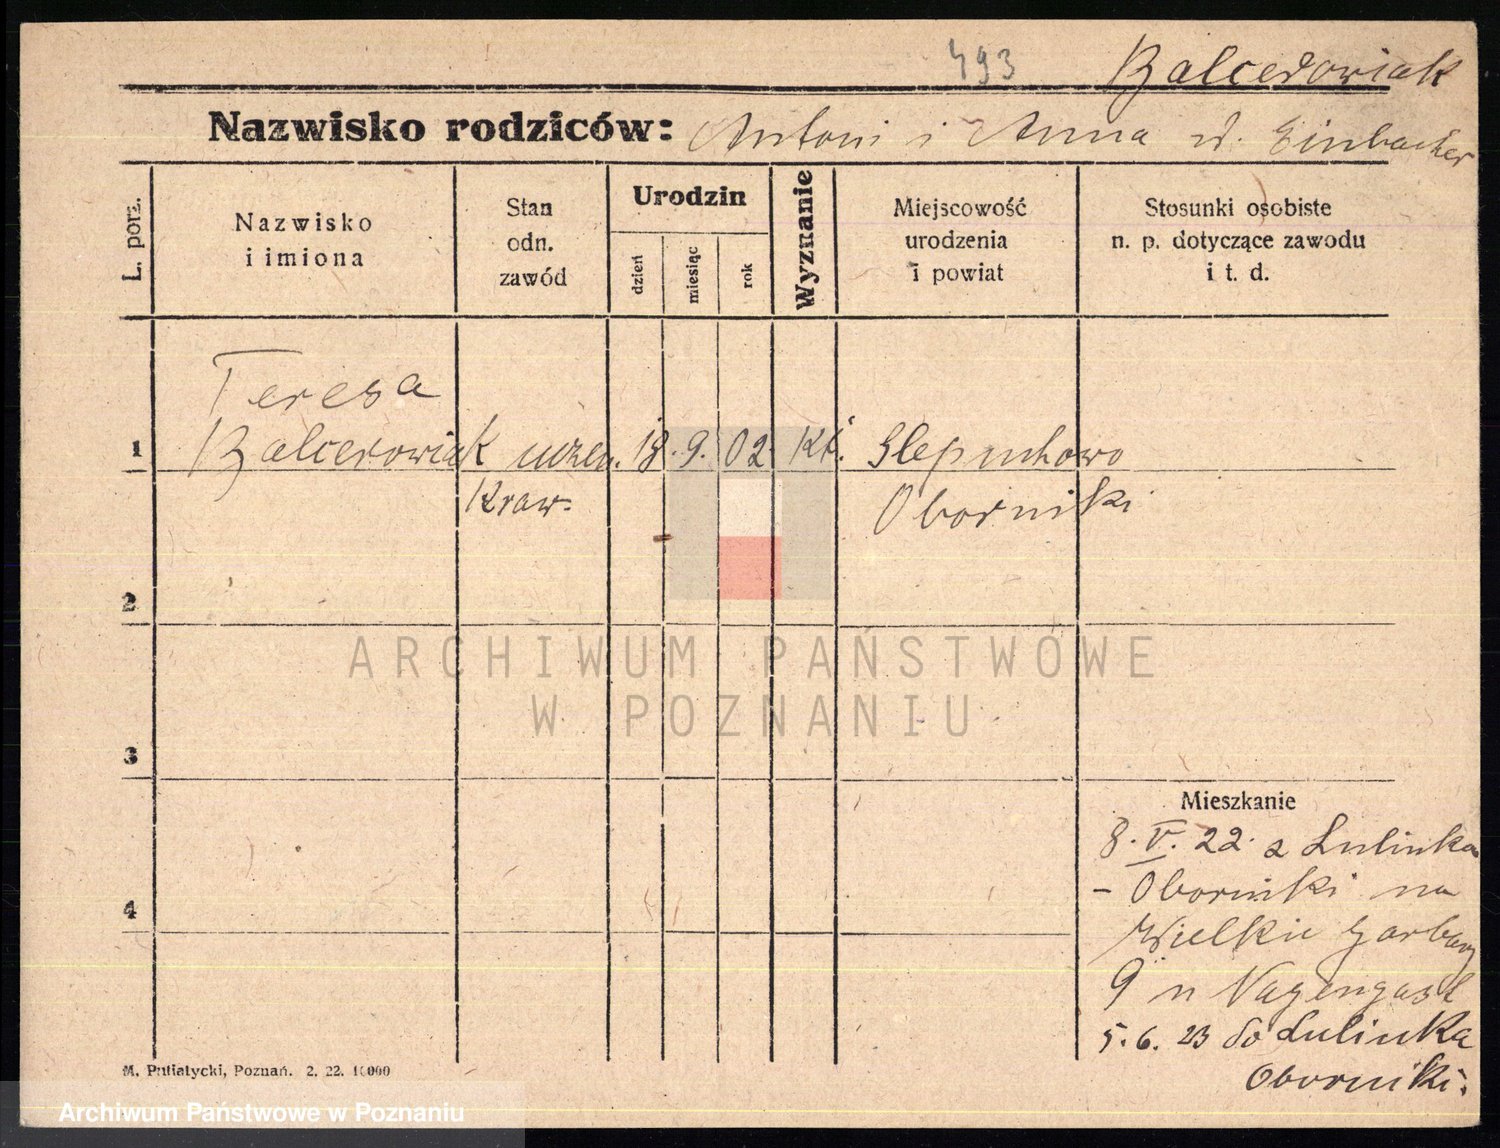 493 Balcerowiak
Nazwisko rodziców: Antoni i Anna d. Einbacher
L. porz.
Nazwisko
i imiona
Stan
odn.
zawód
Urodzin
dzień
miesiąc
rok
Wyznanie
Miejscowość
urodzenia
i powiat
Stosunki osobiste
n. p. dotyczące zawodu
i t. d.
Teresa
1 Balcerowiak uczen. 18. 9. 02. Kt. Slepuchowo
Kraw. Oborniki
2
ARCHIWUM PAŃSTWOWE
W POZNANIU
3
Mieszkanie
8. V. 22. z Lulinka
- Oborniki na
4 Wielkie Garbary
9 u Nagengast
5. 6. 23 do Lulinka
Oborniki.
M. Putiatycki, Poznań. 2. 22. 10000
Archiwum Państwowe w Poznaniu